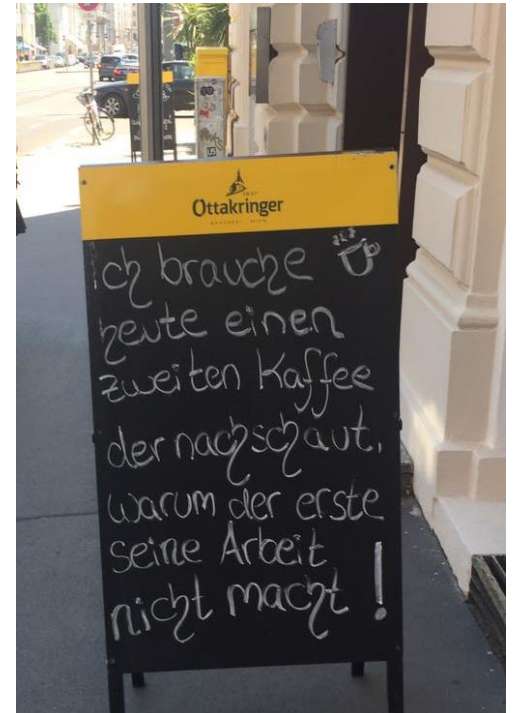 1837
Ottakringer
BRAUEREI · WIEN
Ich brauche
heute einen
zweiten Kaffee
der nachschaut,
warum der erste
seine Arbeit
nicht macht!